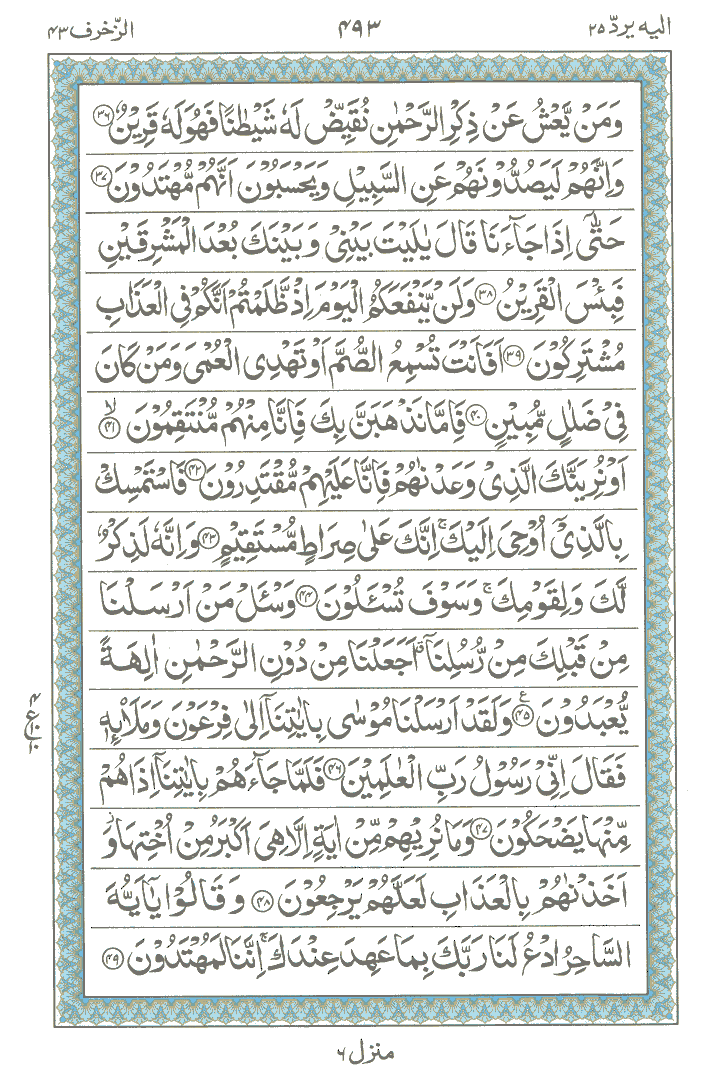 الیه یردّ ۲۵
۴۹۳
الزّخرف ۴۳
وَمَنْ یَّعْشُ عَنْ ذِكْرِ الرَّحْمٰنِ نُقَیِّضْ لَهٗ شَیْطٰنًا فَهُوَ لَهٗ قَرِیْنٌ ۳۶
وَاِنَّهُمْ لَیَصُدُّوْنَهُمْ عَنِ السَّبِیْلِ وَیَحْسَبُوْنَ اَنَّهُمْ مُّهْتَدُوْنَ ۳۷
حَتّٰۤی اِذَا جَآءَنَا قَالَ یٰلَیْتَ بَیْنِیْ وَبَیْنَكَ بُعْدَ الْمَشْرِقَیْنِ
فَبِئْسَ الْقَرِیْنُ ۳۸ وَلَنْ یَّنْفَعَكُمُ الْیَوْمَ اِذْ ظَّلَمْتُمْ اَنَّكُمْ فِی الْعَذَابِ
مُشْتَرِكُوْنَ ۳۹ اَفَاَنْتَ تُسْمِعُ الصُّمَّ اَوْ تَهْدِی الْعُمْیَ وَمَنْ كَانَ
فِیْ ضَلٰلٍ مُّبِیْنٍ ۴۰ فَاِمَّا نَذْهَبَنَّ بِكَ فَاِنَّا مِنْهُمْ مُّنْتَقِمُوْنَ ۙ ۴۱
اَوْ نُرِیَنَّكَ الَّذِیْ وَعَدْنٰهُمْ فَاِنَّا عَلَیْهِمْ مُّقْتَدِرُوْنَ ۴۲ فَاسْتَمْسِكْ
بِالَّذِیْۤ اُوْحِیَ اِلَیْكَ ۚ اِنَّكَ عَلٰی صِرَاطٍ مُّسْتَقِیْمٍ ۴۳ وَاِنَّهٗ لَذِكْرٌ
لَّكَ وَلِقَوْمِكَ ۚ وَسَوْفَ تُسْـَٔلُوْنَ ۴۴ وَسْـَٔلْ مَنْ اَرْسَلْنَا
مِنْ قَبْلِكَ مِنْ رُّسُلِنَاۤ اَجَعَلْنَا مِنْ دُوْنِ الرَّحْمٰنِ اٰلِهَةً
یُّعْبَدُوْنَ ۴۵ ع وَلَقَدْ اَرْسَلْنَا مُوْسٰی بِاٰیٰتِنَاۤ اِلٰی فِرْعَوْنَ وَمَلَاۡىِٕهٖ
فَقَالَ اِنِّیْ رَسُوْلُ رَبِّ الْعٰلَمِیْنَ ۴۶ فَلَمَّا جَآءَهُمْ بِاٰیٰتِنَاۤ اِذَا هُمْ
مِّنْهَا یَضْحَكُوْنَ ۴۷ وَمَا نُرِیْهِمْ مِّنْ اٰیَةٍ اِلَّا هِیَ اَكْبَرُ مِنْ اُخْتِهَا ؗ وَ
اَخَذْنٰهُمْ بِالْعَذَابِ لَعَلَّهُمْ یَرْجِعُوْنَ ۴۸ وَقَالُوْا یٰۤاَیُّهَ
السَّاحِرُ ادْعُ لَنَا رَبَّكَ بِمَا عَهِدَ عِنْدَكَ ۚ اِنَّنَا لَمُهْتَدُوْنَ ۴۹
منزل ۶